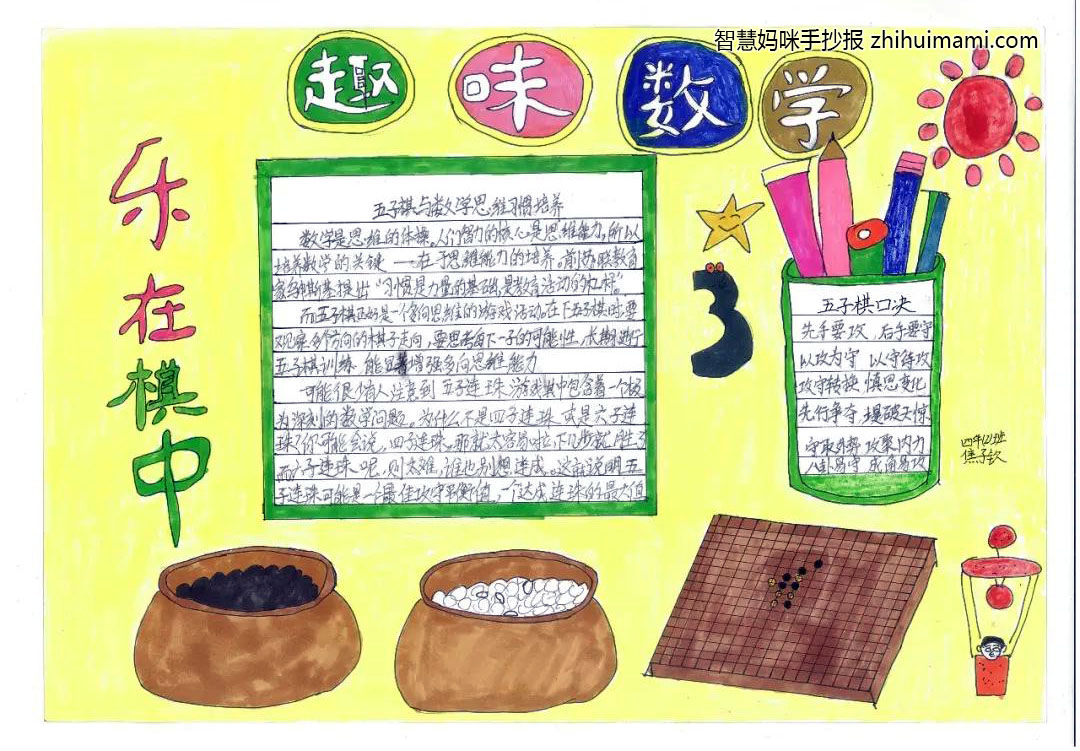 智慧妈咪手抄报 zhihuimami.com
趣味数学
乐在棋中
五子棋与数学思维习惯培养
数学是思维的体操。人们智力的核心是思维能力,所以
培养数学的关键——在于思维能力的培养。前苏联教育
家 提出“习惯是力量的基础,是教育活动的杠杆”。
而五子棋正好是一个多向思维的游戏活动。在下五子棋时,要
观察多个方向的棋子走向,要思考每下一子的可能性,长期进行
五子棋训练 能显著增强多向思维能力
可能很少有人注意到 五子连珠 游戏其中包含着一个极
为深刻的数学问题。为什么不是四子连珠 或是六子连
珠?你可能会说,四子连珠,那就太容易啦,下几步就胜了
而六子连珠呢,则太难,谁也别想连成。这就说明五
子连珠可能是一个最佳攻守平衡值,一个达成连珠的最大值
3
五子棋口决
先手要攻,后手要守
以攻为守 以守待攻
攻守转换 慎思变化
先行争夺,堤破天惊
守取外势 攻聚内力
八卦易守 成角易攻
四年(2)班
焦子钦